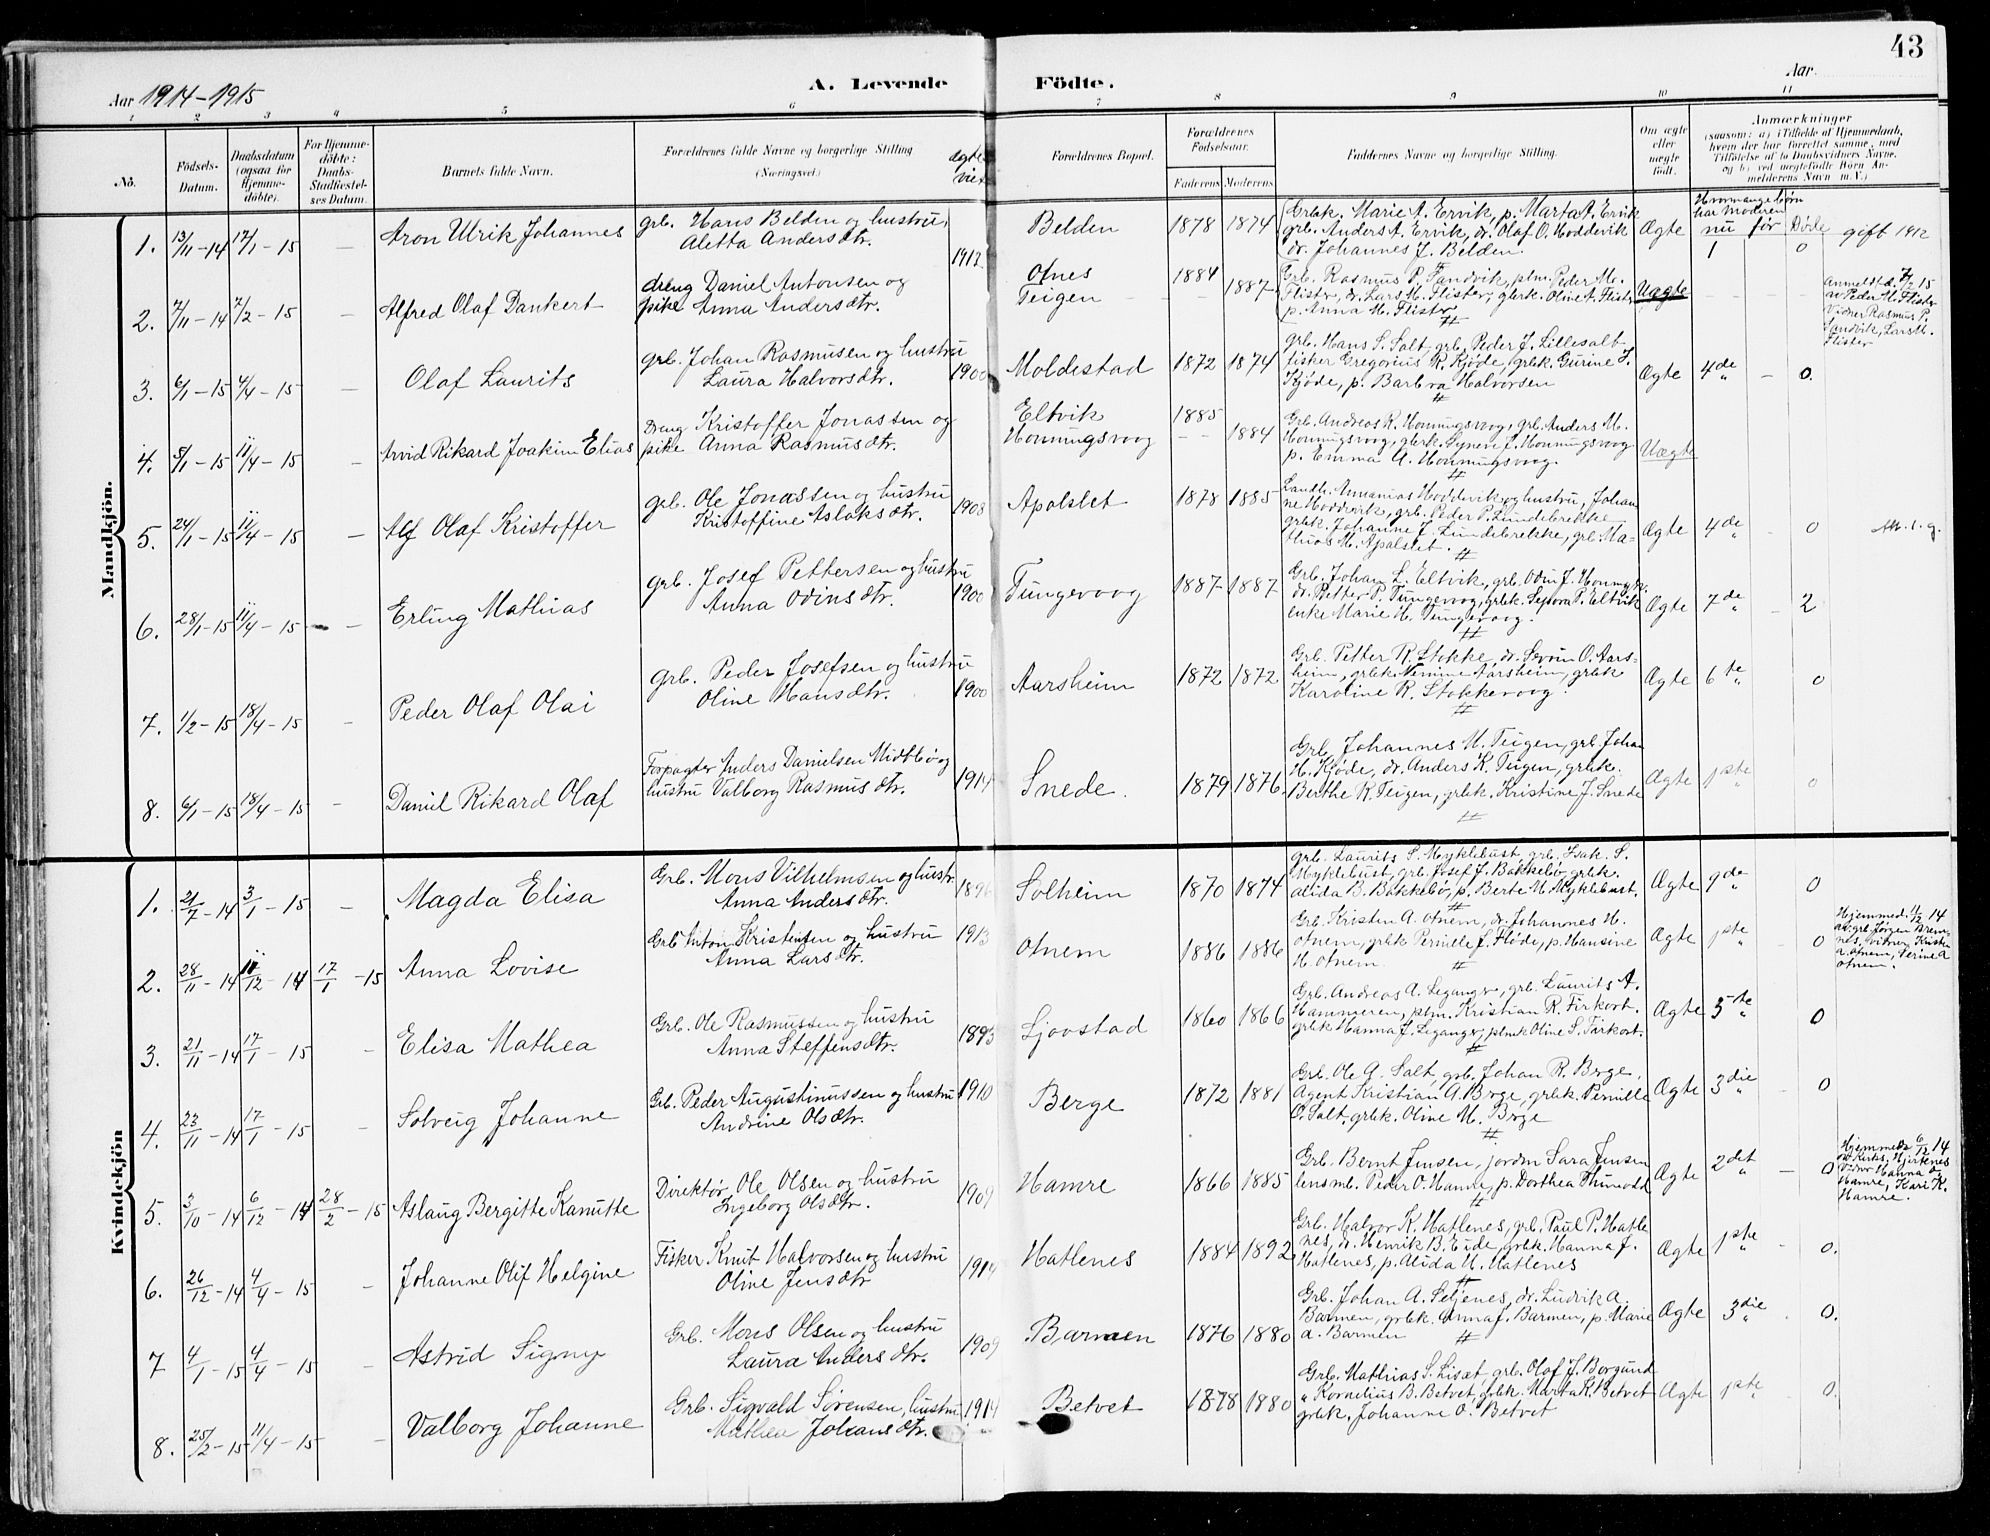 43
Aar 1914-1915
A. Levende Födte.
Aar
1 2 3 4 5 6 7 8 9 10 11
No.
Födsels-Datum.
Daabsdatum (ogsaa for Hjemmedöbte).
For Hjemmedöbte: Daabs-Stadfæstelses Datum.
Barnets fulde Navn.
Forældrenes fulde Navne og borgerlige Stilling (Næringsvei.)
Ægte viet
Forældrenes Bopæl.
Forældrenes Födselsaar.
Faderens Moderens
Faddernes Navne og borgerlige Stilling.
Om ægte eller uægte födt.
Anmærkninger
(saasom: a) i Tilfælde af Hjemmedaab, hvem der har forrettet samme, med Tilföielse af to Daabsvidners Navne, og b) ved uægtefödte Börn Anmelderens Navn m. V.)
Hvormange børn har moderen nu før Døde
Mandkjön.
1. 13/11-14 17/1-15 – Aron Ulrik Johannes
grb. Hans Belden og hustru, Aletta Andersdtr. 1912
Belden 1878 1874
Grbk. Marie A. Ervik, p. Marta A. Ervik
grb. Anders A. Ervik, dr. Olaf O. Hoddevik
dr. Johannes J. Belden.
Ægte 1 0 gift 1912
2. 7/11-14 7/2-15 – Alfred Olaf Dankert
dreng Daniel Antonsen og
pike Anna Andersdtr.
Otnes 1884
Teigen 1887
Grb. Rasmus P. Sandvik, plm. Peder M.
Flister, dr. Lars M. Flister, gbrk. Oline A. Flister
p. Anna M. Flister
Uægte
Anmeldt d. 7/2 15
av Peder M. Flister
Vidner Rasmus P.
Sandvik, Lars M.
Flister
3. 6/1-15 4/4-15 – Olaf Laurits
grb. Johan Rasmusen og hustru
Laura Halvorsdtr. 1900
Moldestad 1872 1874
grb. Hans S. Salt, grb. Peder J. Lillesalt
fisker Gregorius R. Kjøde, grbk. Gurine J.
Kjøde, p. Barbra Halvorsen
Ægte 4de – 0.
4. 5/1-15 11/4-15 – Arvid Rikard Joakim Elias
Dreng Kristoffer Jonassen og
pike Anna Rasmusdtr.
Eltvik 1885
Honningsvoog 1884
Grb. Andreas R. Honningsvoog, grb. Anders M.
Honningsvoog, gbrk. Synev J. Honningsvoog
p. Emma A. Honningsvoog.
Uægte
5. 24/1-15 11/4-15 – Alf Olaf Kristoffer
grb. Ole Jonassen og hustru
Kristoffine Aslaksdtr. 1908
Apalslet 1878 1885
Landh. Annanias Hoddevik og hustru, Johan
ne Hoddevik, grb. Peder P. Lundebrekke
grbk. Johanne J. Lundebrekke, grb. Ma-
thias M. Apalslet.
Ægte 4de – 0
6. 28/1-15 11/4-15 – Erling Mathias
grb. Josef Pettersen og hustru
Anna Odinsdtr. 1900
Tungevoog 1887 1887
Grb. Johan L. Eltvik, grb. Odin J.
dr. Petter P. Tungevoog, grbk. P. Eltvik
enke Marie H. Tungevoog.
Ægte 7de – 2
7. 1/2-15 18/4-15 – Peder Olaf Olai
grb. Peder Josefsen og hustru
Oline Hansdtr. 1900
Aarsheim 1872 1872
Grb. Petter R. Stokke, dr. O. Aars-
heim, grbk. Aarsheim, grbk
Karoline R. Stokkevoog.
Ægte 6te 0
8. 6/1-15 18/4-15 – Daniel Rikard Olaf
Forpagter Anders Danielsen Midtbø og
hustru Valborg Rasmusdtr. 1914
Snede. 1879 1876.
Grb. Johannes M. Teigen, grb. Johan
H. Kjøde, dr. Anders K. Teigen, grbk.
Berthe R. Teigen, grbk. Kristine J. Snede
Ægte 1ste 0
Kvindekjön
1. 21/7-14 3/1-15 – Magda Elisa
Grb. Mons Vilhelmsen og hustr.
Anna Andersdtr. 1896
Solheim 1870 1874
grb. Laurits S. Myklebust, grb. Isak. S.
Myklebust, grb. Josef J. Bakkebø, grbk.
Alida B. Bakkebø, p. Berte M. Myklebust.
Ægte 9de 0
2. 28/11-14 /12-14 17/1-15 Anna Lovise
Grb. Anton Kristensen og hustru
Anna Larsdtr. 1913
Otnem 1886 1886
Grb. Kristen A. Otnem, dr. Johannes H.
Otnem, grbk Pernille J. Fløde, p. Hansine
H. Otnem.
Ægte 1ste – 0
Hjemmed. /12 14
av grb. Jørgen Drem-
nes, vitner Kristen
A. Otnem, Serine A
Otnem.
3. 21/11-14 17/1-15 – Elisa Mathea
Grb. Ole Rasmussen og hustru
Anna Steffensdtr. 1893
Ljoostad 1860 1866
Grb. Andreas A. Leganger, grb. Laurits A.
Hammeren, plm. Kristian R.
grbk Hanna J. Leganger, plmk Oline S.
Ægte 5te 0
4. 23/11-14 17/1-15 – Solveig Johanne
Grb. Peder Augustinussen og hustru
Andrine Olsdtr. 1910
Berge 1872 1881
Grb. Ole A. Salt, grb. Johan R. Berge,
Agent Kristian A. Berge, grbk. Pernille
O. Salt, grbk. Oline M. Berge
Ægte 3die 0
5. 3/10-14 6/12-14 28/2-15 Aslaug Bergitte Kanutte
Direktør Ole Olsen og hustru
Ingeborg Olsdtr. 1909
Hamre 1866 1885
Grb. Bernt Jensen, jordm Sara Jensen
lensm. Peder O. Hamre, p. Dorthea
Ægte 2det – 0
Hjemmed. 6/12 14
Hjertenes
Vidner Hanna O
Hamre, Kari K.
Hamre.
6. 26/12-14 4/4-15 – Johanne Olif Helgine
Fisker Knut Halvorsen og hustru
Oline Jensdtr 1914
Hatlenes 1884 1892
Grb. Halvor K. Hatlenes, grb. Paul P. Hatle
nes, dr. Henrik B. Eide, grbk. Hanna J.
Hatlenes, p. Alida M. Hatlenes
Ægte 1ste – 0.
7 4/1-15 4/4-15 – Astrid Signy
Grb. Mons Olsen og hustru
Laura Andersdtr. 1909
Barmen 1876 1880
Grb. Johan A. Seljenes, dr. Ludvik A.
Barmen, grbk. Anna J. Barmen, p. Marie
A. Barmen
Ægte 3die – 0.
8. 25/2-15 11/4-15 – Valborg Johanne
Grb. Sigvald Sørensen, hustru
Mathea Johansdtr. 1914
Betvet 1878 1880
Grb. Mathias S. Liset, grb. Olaf J. Borgund
" Kornelius B. Betvet, grbk. Marta K. Betvet
grbk. Johanne O. Betvet
Ægte 1ste – 0.